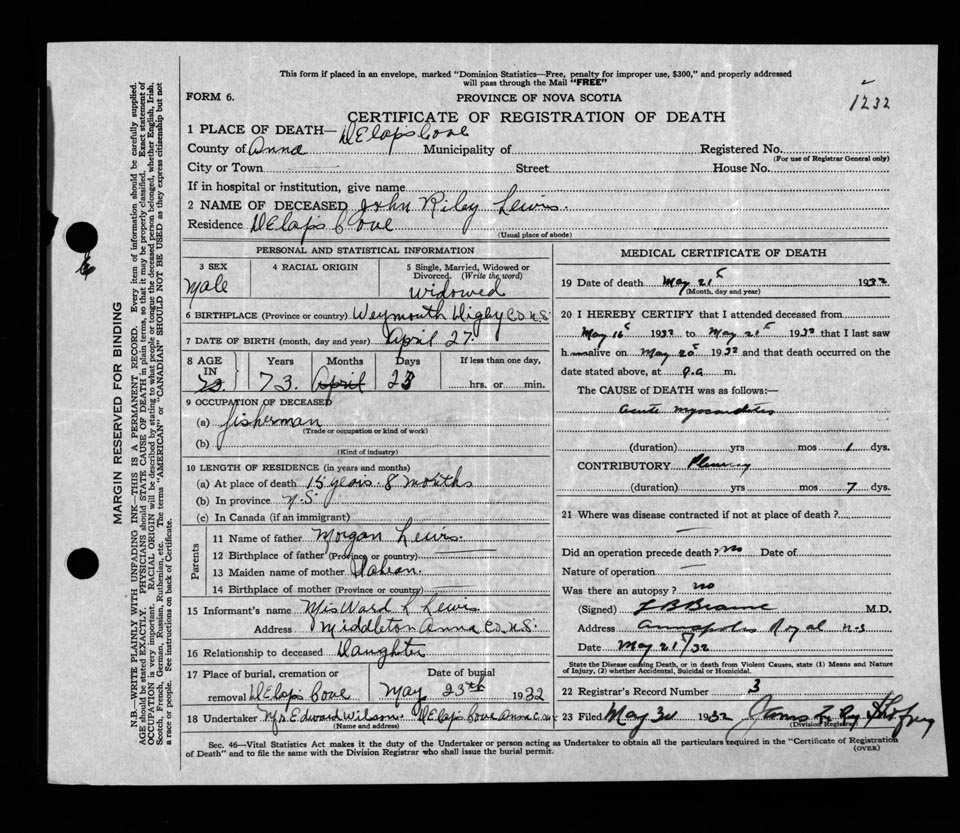 This form if placed in an envelope, marked "Dominion Statistics—Free, penalty for improper use, $300," and properly addressed
will pass through the Mail "FREE"
FORM 6.
PROVINCE OF NOVA SCOTIA
1232
CERTIFICATE OF REGISTRATION OF DEATH
1 PLACE OF DEATH— DElaps Cove
County of Anna Municipality of Registered No.
(For use of Registrar General only)
City or Town Street House No.
If in hospital or institution, give name
2 NAME OF DECEASED John Riley Lewis.
Residence DElaps Cove
(Usual place of abode)
PERSONAL AND STATISTICAL INFORMATION
3 SEX 4 RACIAL ORIGIN 5 Single, Married, Widowed or
Divorced. (Write the word)
Male Widowed
6 BIRTHPLACE (Province or country) Weymouth Digby Co N.S.
7 DATE OF BIRTH (month, day and year) April 27.
8 AGE Years Months Days If less than one day,
IN 73. April 23 hrs. or min.
9 OCCUPATION OF DECEASED
(a) fisherman
(Trade or occupation or kind of work)
(b)
(Kind of industry)
10 LENGTH OF RESIDENCE (in years and months)
(a) At place of death 15 years 8 months
(b) In province N.S.
(c) In Canada (if an immigrant)
Parents
11 Name of father Morgan Lewis.
12 Birthplace of father (Province or country)
13 Maiden name of mother
14 Birthplace of mother (Province or country)
15 Informant's name Mrs Ward L Lewis
Address Middleton Anna Co. N.S.
16 Relationship to deceased Daughter
17 Place of burial, cremation or Date of burial
removal DElaps Cove May 23th 1932
18 Undertaker Mr Edward Wilson. DElaps Cove Anna Co
(Name and address)
MEDICAL CERTIFICATE OF DEATH
19 Date of death May 21 1932
(Month, day and year)
20 I HEREBY CERTIFY that I attended deceased from
May 16 1932 to May 21 1932 that I last saw
h alive on May 20 1932 and that death occurred on the
date stated above, at m.
The CAUSE of DEATH was as follows:—
acute myocarditis
(duration) yrs mos 1 dys.
CONTRIBUTORY Pleurisy
(duration) yrs mos 7 dys.
21 Where was disease contracted if not at place of death?
Did an operation precede death? no Date of
Nature of operation
Was there an autopsy? no
(Signed) M.D.
Address Annapolis Royal N.S
Date May 21/32
State the Disease causing Death, or in death from Violent Causes, state (1) Means and Nature
of Injury, (2) whether Accidental, Suicidal or Homicidal.
22 Registrar's Record Number 3
23 Filed May 1932
(Division Registrar)
Sec. 46—Vital Statistics Act makes it the duty of the Undertaker or person acting as Undertaker to obtain all the particulars required in the "Certificate of Registration
of Death" and to file the same with the Division Registrar who shall issue the burial permit.
(OVER)
MARGIN RESERVED FOR BINDING
N.B.—WRITE PLAINLY WITH UNFADING INK—THIS IS A PERMANENT RECORD. Every item of information should be carefully supplied.
AGE should be stated EXACTLY. PHYSICIANS should STATE CAUSE OF DEATH in plain terms, so that it may be properly classified. Exact statement of
OCCUPATION is very important. RACIAL ORIGIN will be described by stating to what people or tongue the deceased person belonged, whether English, Irish,
Scotch, French, German, Russian, Ruthenian, etc. The terms "AMERICAN" or "CANADIAN" SHOULD NOT BE USED as they express citizenship but not
a race or people. See instructions on back of Certificate.